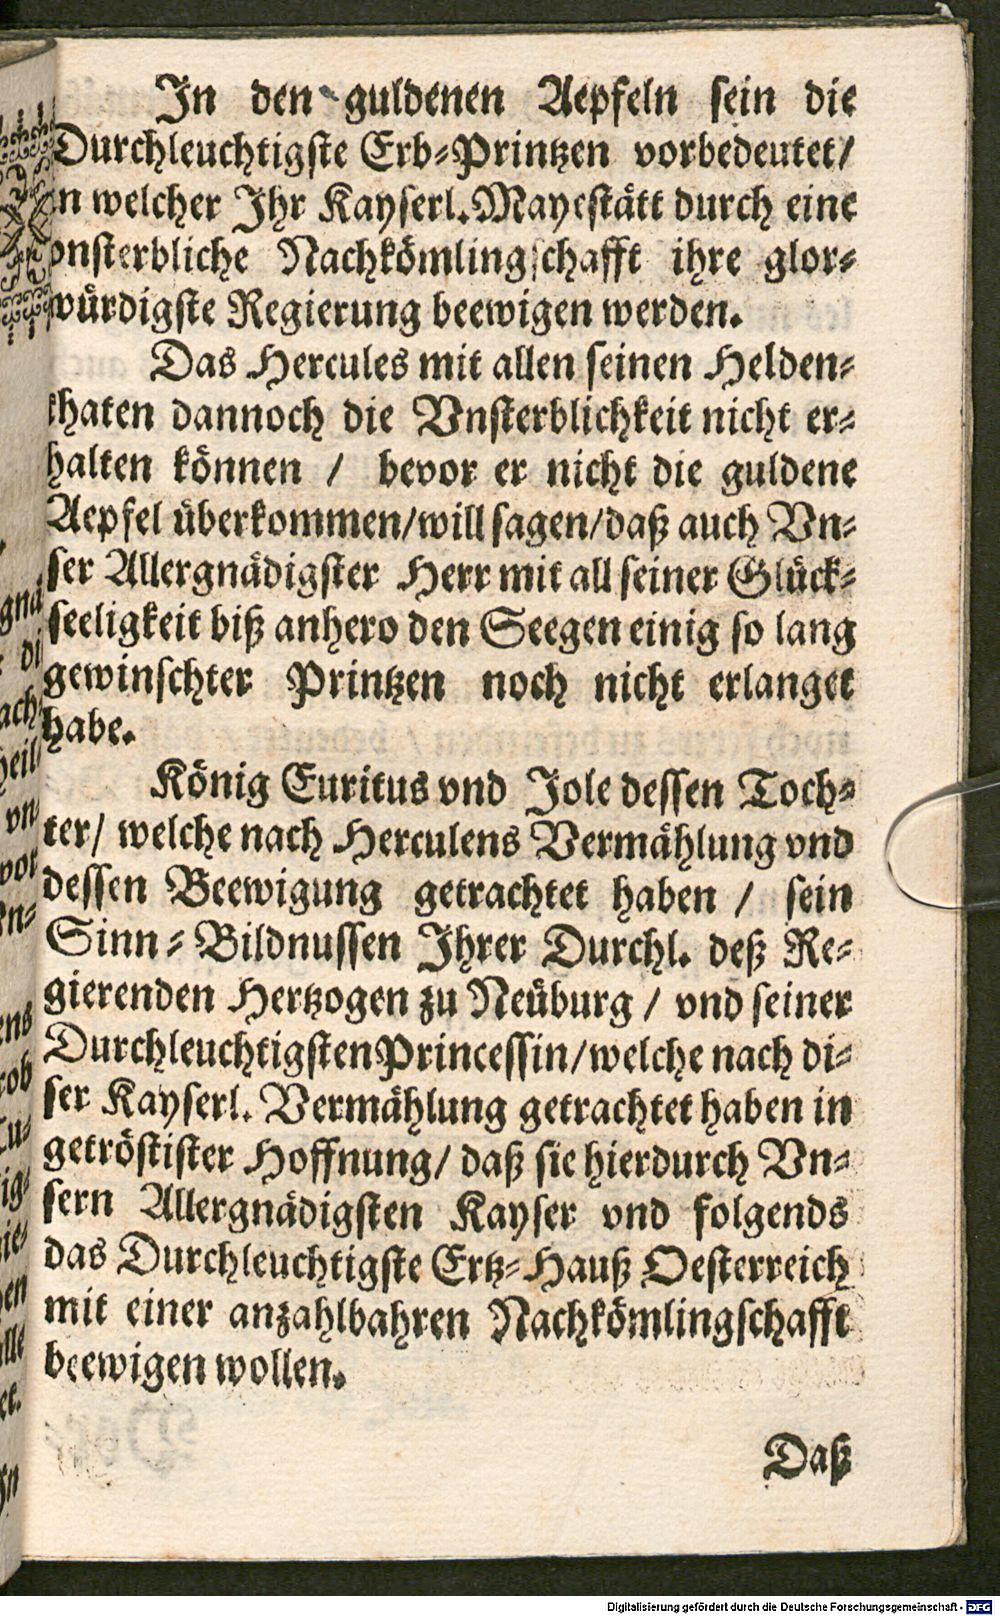 In den guldenen Aepfeln sein die
Durchleuchtigste Erb-Printzen vorbedeutet/
in welcher Ihr Kayserl. Mayestätt durch eine
vnsterbliche Nachkömlingschafft ihre glor-
würdigste Regierung beewigen werden.
Das Hercules mit allen seinen Helden-
thaten dannoch die Vnsterblichkeit nicht er-
halten können / bevor er nicht die guldene
Aepfel überkommen/will sagen/daß auch Vn-
ser Allergnädigster Herr mit all seiner Glück-
seeligkeit biß anhero den Seegen einig so lang
gewinschter Printzen noch nicht erlanget
habe.
König Euritus vnd Jole dessen Toch-
ter/ welche nach Herculens Vermählung vnd
dessen Beewigung getrachtet haben / sein
Sinn-Bildnussen Ihrer Durchl. deß Re-
gierenden Hertzogen zu Neüburg / vnd seiner
Durchleuchtigsten Princessin/welche nach di-
ser Kayserl. Vermählung getrachtet haben in
getröstister Hoffnung/ daß sie hierdurch Vn-
sern Allergnädigsten Kayser vnd folgends
das Durchleuchtigste Ertz-Hauß Oesterreich
mit einer anzahlbahren Nachkömlingschafft
beewigen wollen.
Daß
Digitalisierung gefördert durch die Deutsche Forschungsgemeinschaft - DFG